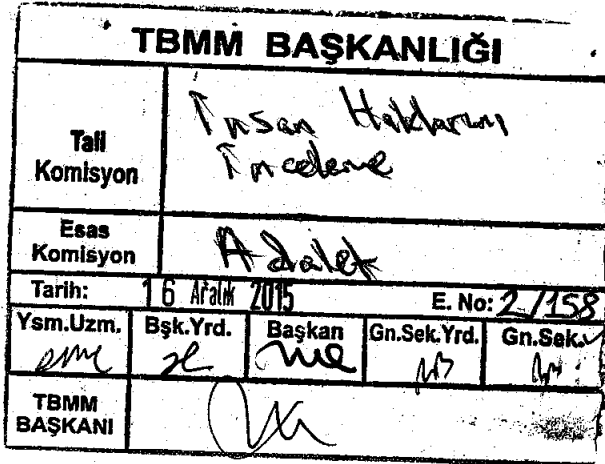 TBMM BAŞKANLIĞI
Tali
Komisyon
İnsan Haklarını
İnceleme
Esas
Komisyon
Adalet
Tarih: 16 Aralık 2015 E. No: 2/158
Ysm.Uzm. Bşk.Yrd. Başkan Gn.Sek.Yrd. Gn.Sek.
TBMM
BAŞKANI